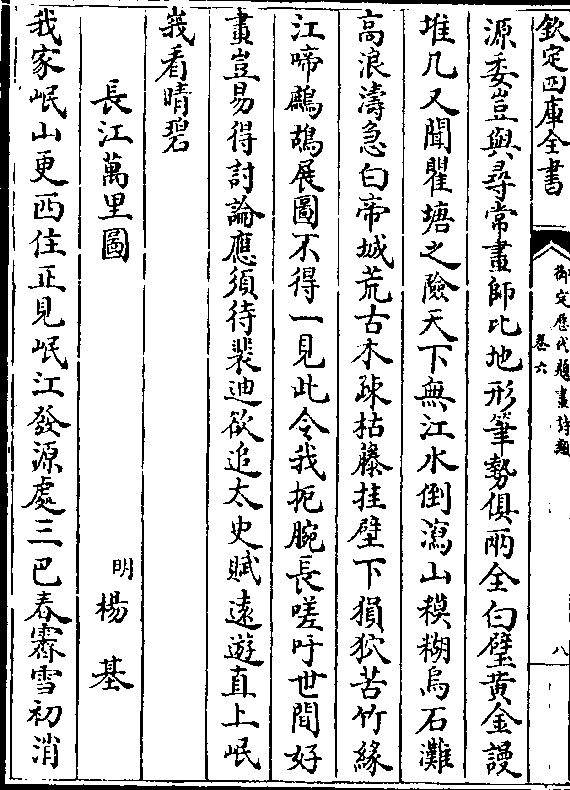 欽定四庫全書
御定歷代題畫詩類
卷六
八
源委豈與尋常畫師比地形筆勢俱兩全白璧黃金謾
堆几又聞瞿塘之險天下無江水倒瀉山糢糊烏石灘
高浪濤急白帝城荒古木疎枯藤挂壁下狽狖苦竹緣
江啼鷓鴣展圖不得一見此令我扼腕長嗟吁世間好
畫豈易得討論應須待裴迪欲追太史賦遠遊直上岷
峩看晴碧
長江萬里圖
明楊基
我家岷山更西住正見岷江發源處三巴春霽雪初消